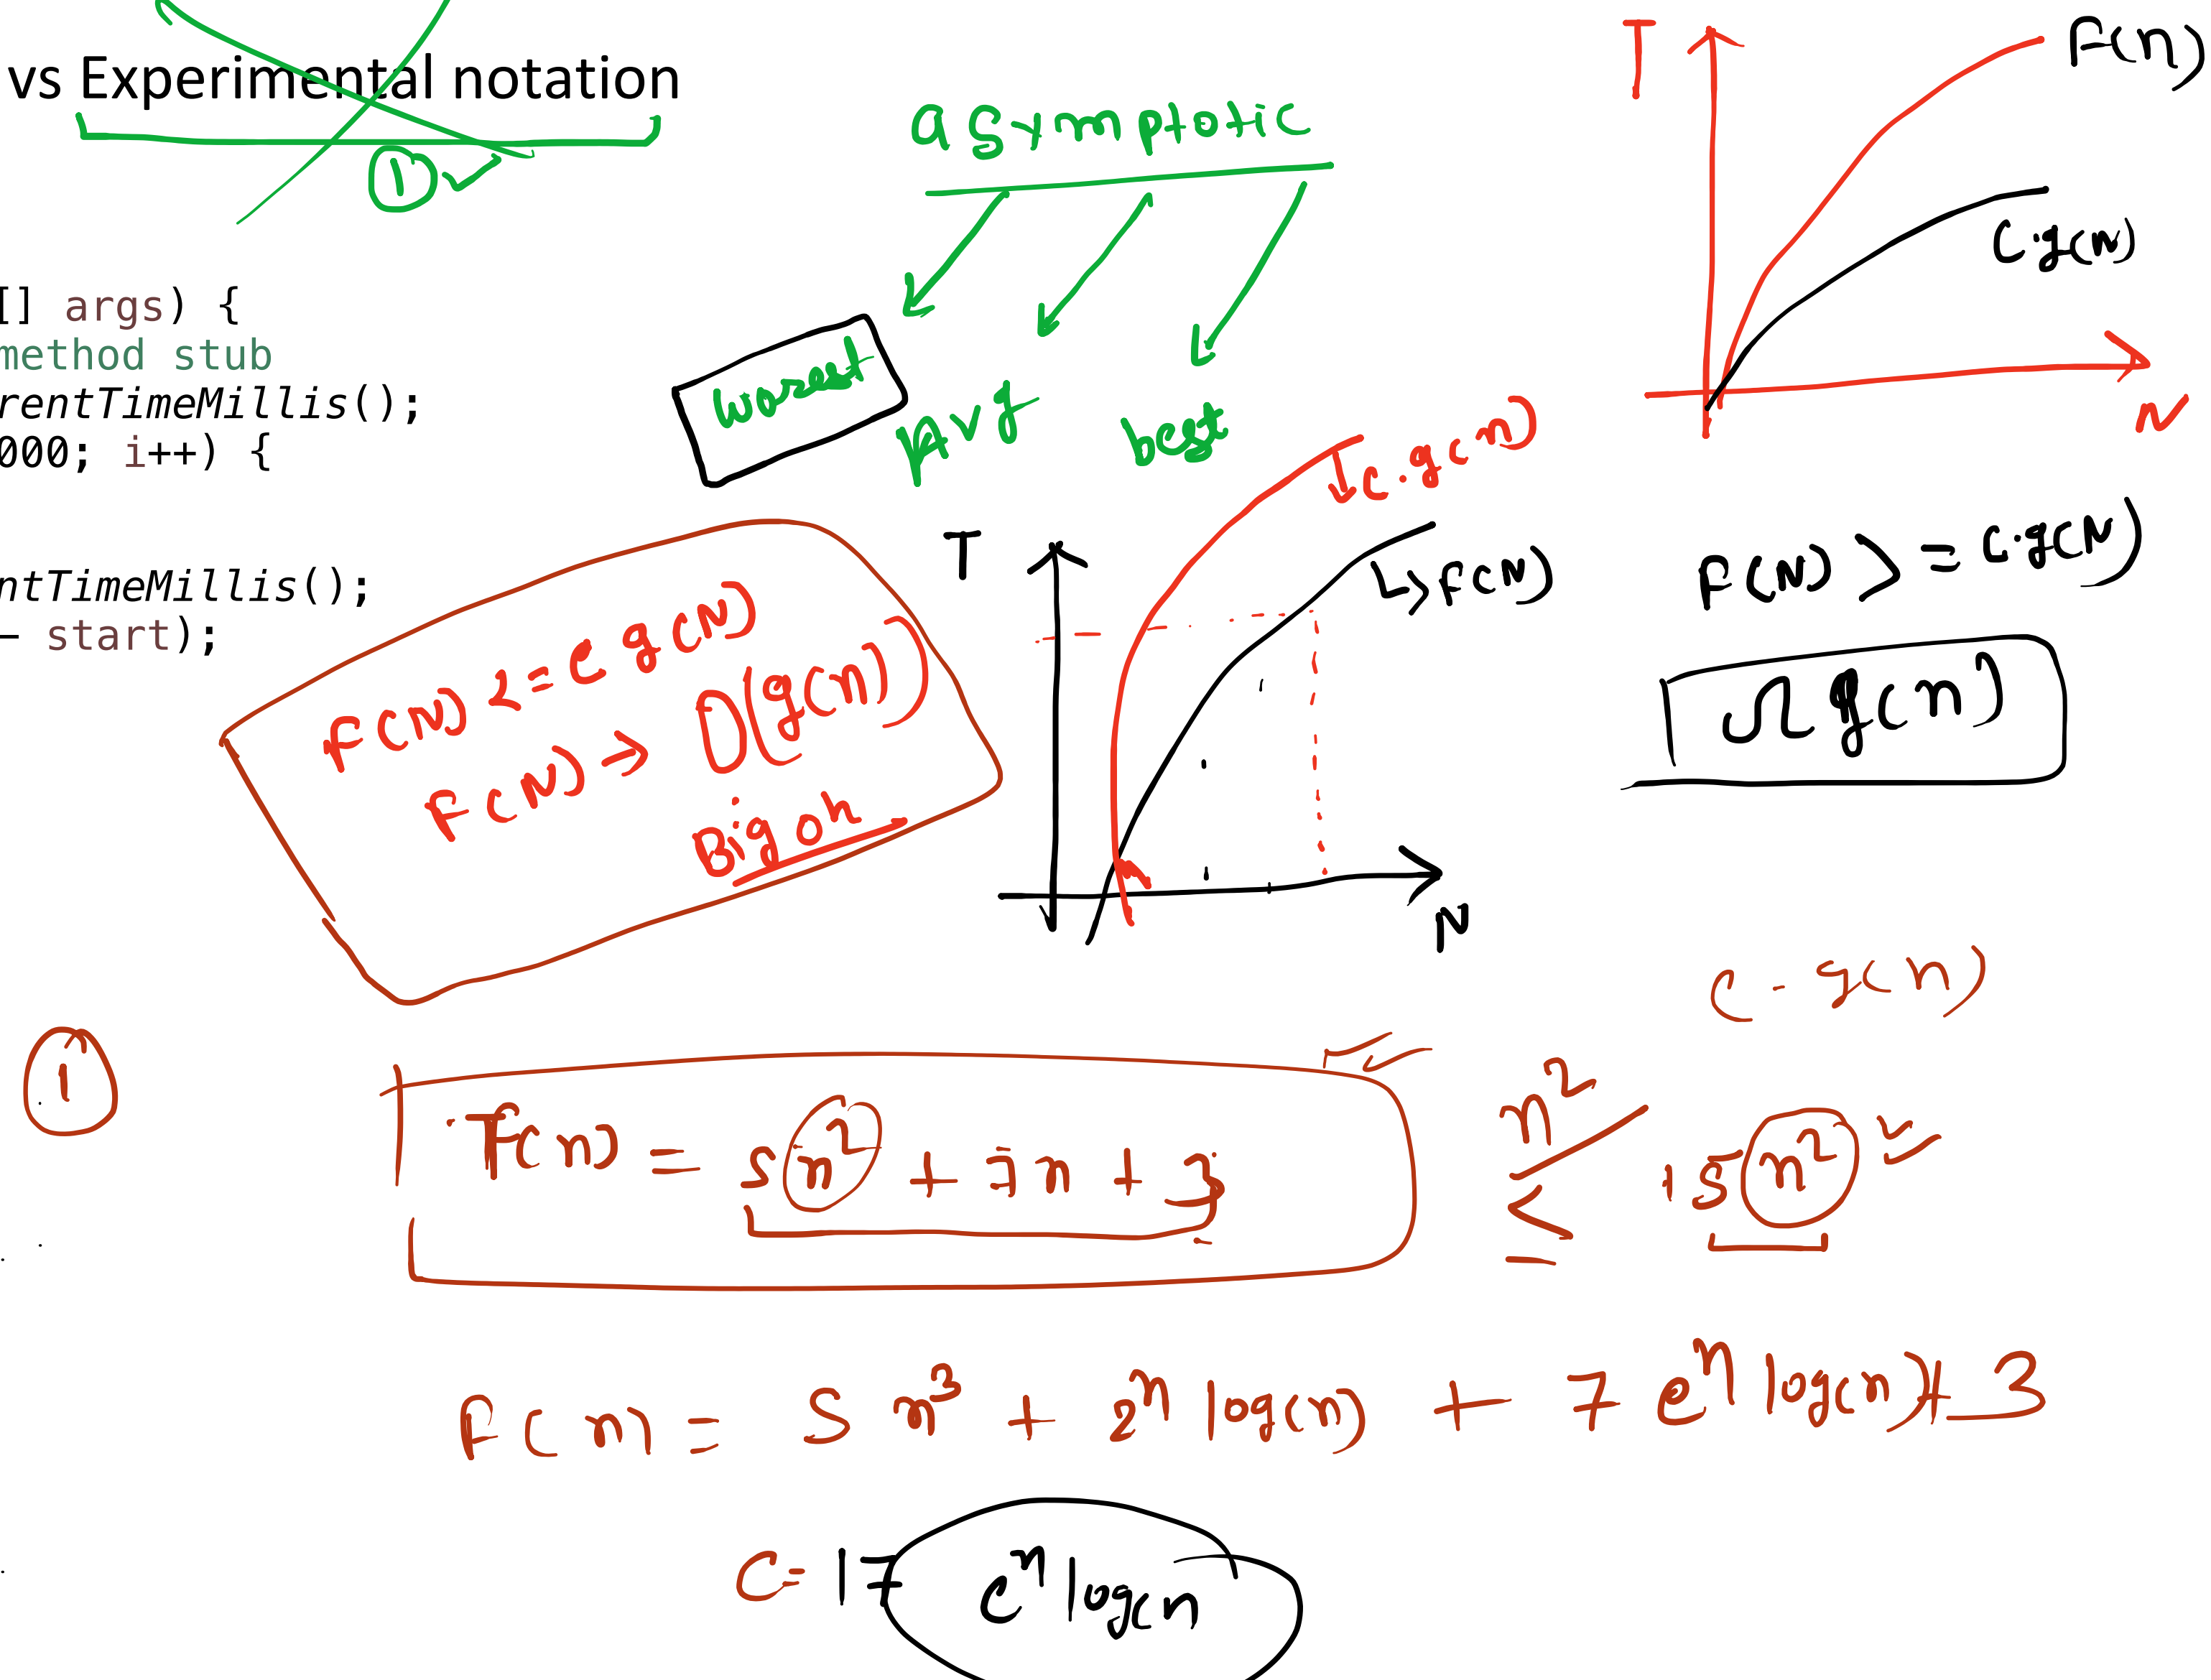 vs Experimental notation
①
asymptotic
worst
Avg
best
[] args) {
method stub
rentTimeMillis();
000; i++) {
ntTimeMillis();
– start);
T
F(n)
C.g(n)
N
F(N) >= C.g(N)
Ω g(n)
T
C.g(n)
↳ F(N)
N
F(N) <= C g(N)
F(N) → O(g(n))
Big on
C - g(n)
①
F(n) = 5n² + 7n + 3
n²
≤ 15n²
F(n) = 5 n³ + 2ⁿ log(n) + 7 eⁿ log(n) + 3
C = 17 eⁿ log(n